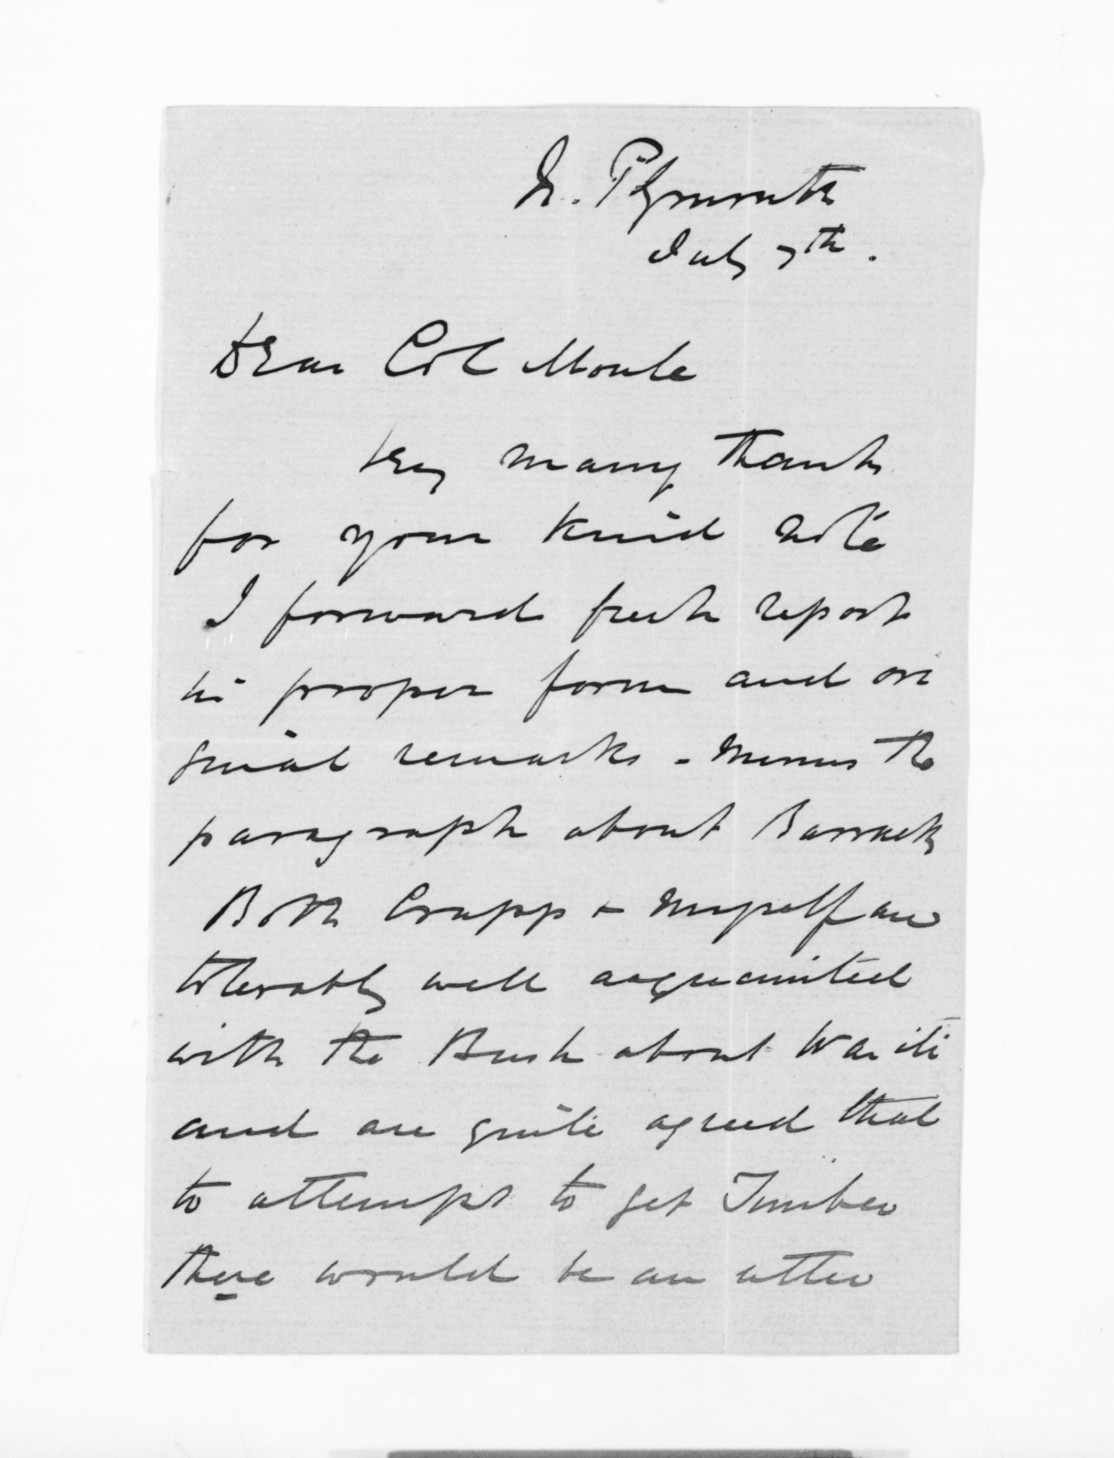 N. Plymouth
July 7th.
Dear Col Moule
Very many thanks
for your kind note
I forward fresh report
in proper form and ori
ginal remarks - minus the
paragraph about Barracks
Both Crapp + myself are
tolerably well acquainted
with the Bush about Waiiti
and are quite agreed that
to attempt to get Timber
there would be an utter